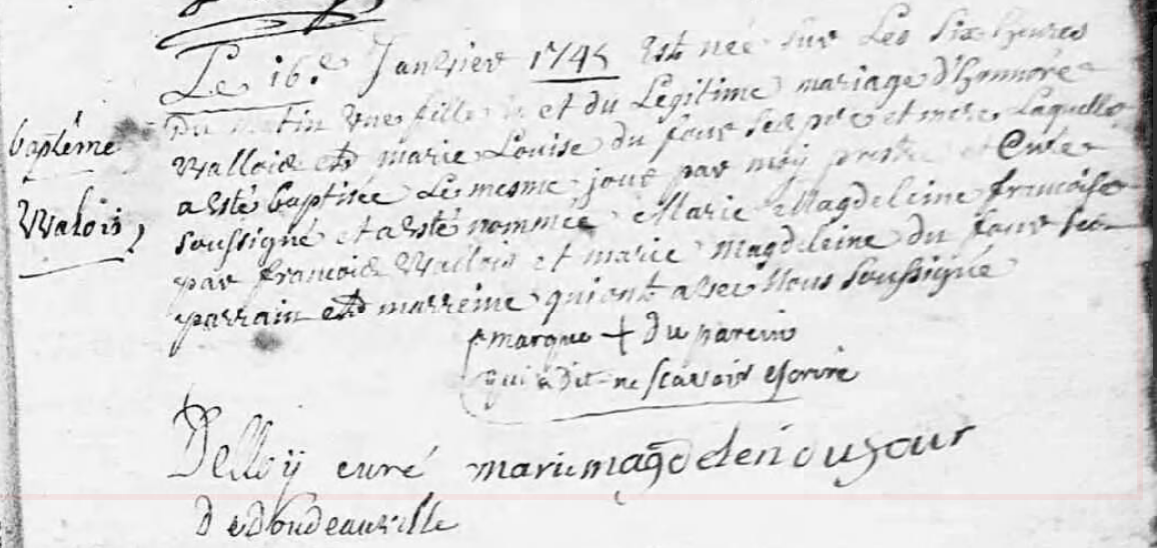 Le 16.e Janvier 1745 Est née sur Les Six heures
du matin une fille et du Legitime mariage d'honnoré
Wallois et marie Louise du four ses pere et mere Laquelle
baptême
a esté baptisée Le mesme jour par moy prestre et Curé
Walois
soussigné et a esté nommée Marie Magdeleine francoise
par francois Wallois et marie Magdeleine du four ses
parrain et marreine qui ont avec Nous soussigné
marque + du parein
qui a dit ne scavoir escrire
Delloÿ curé marie magdelen dufour
de doudeauville